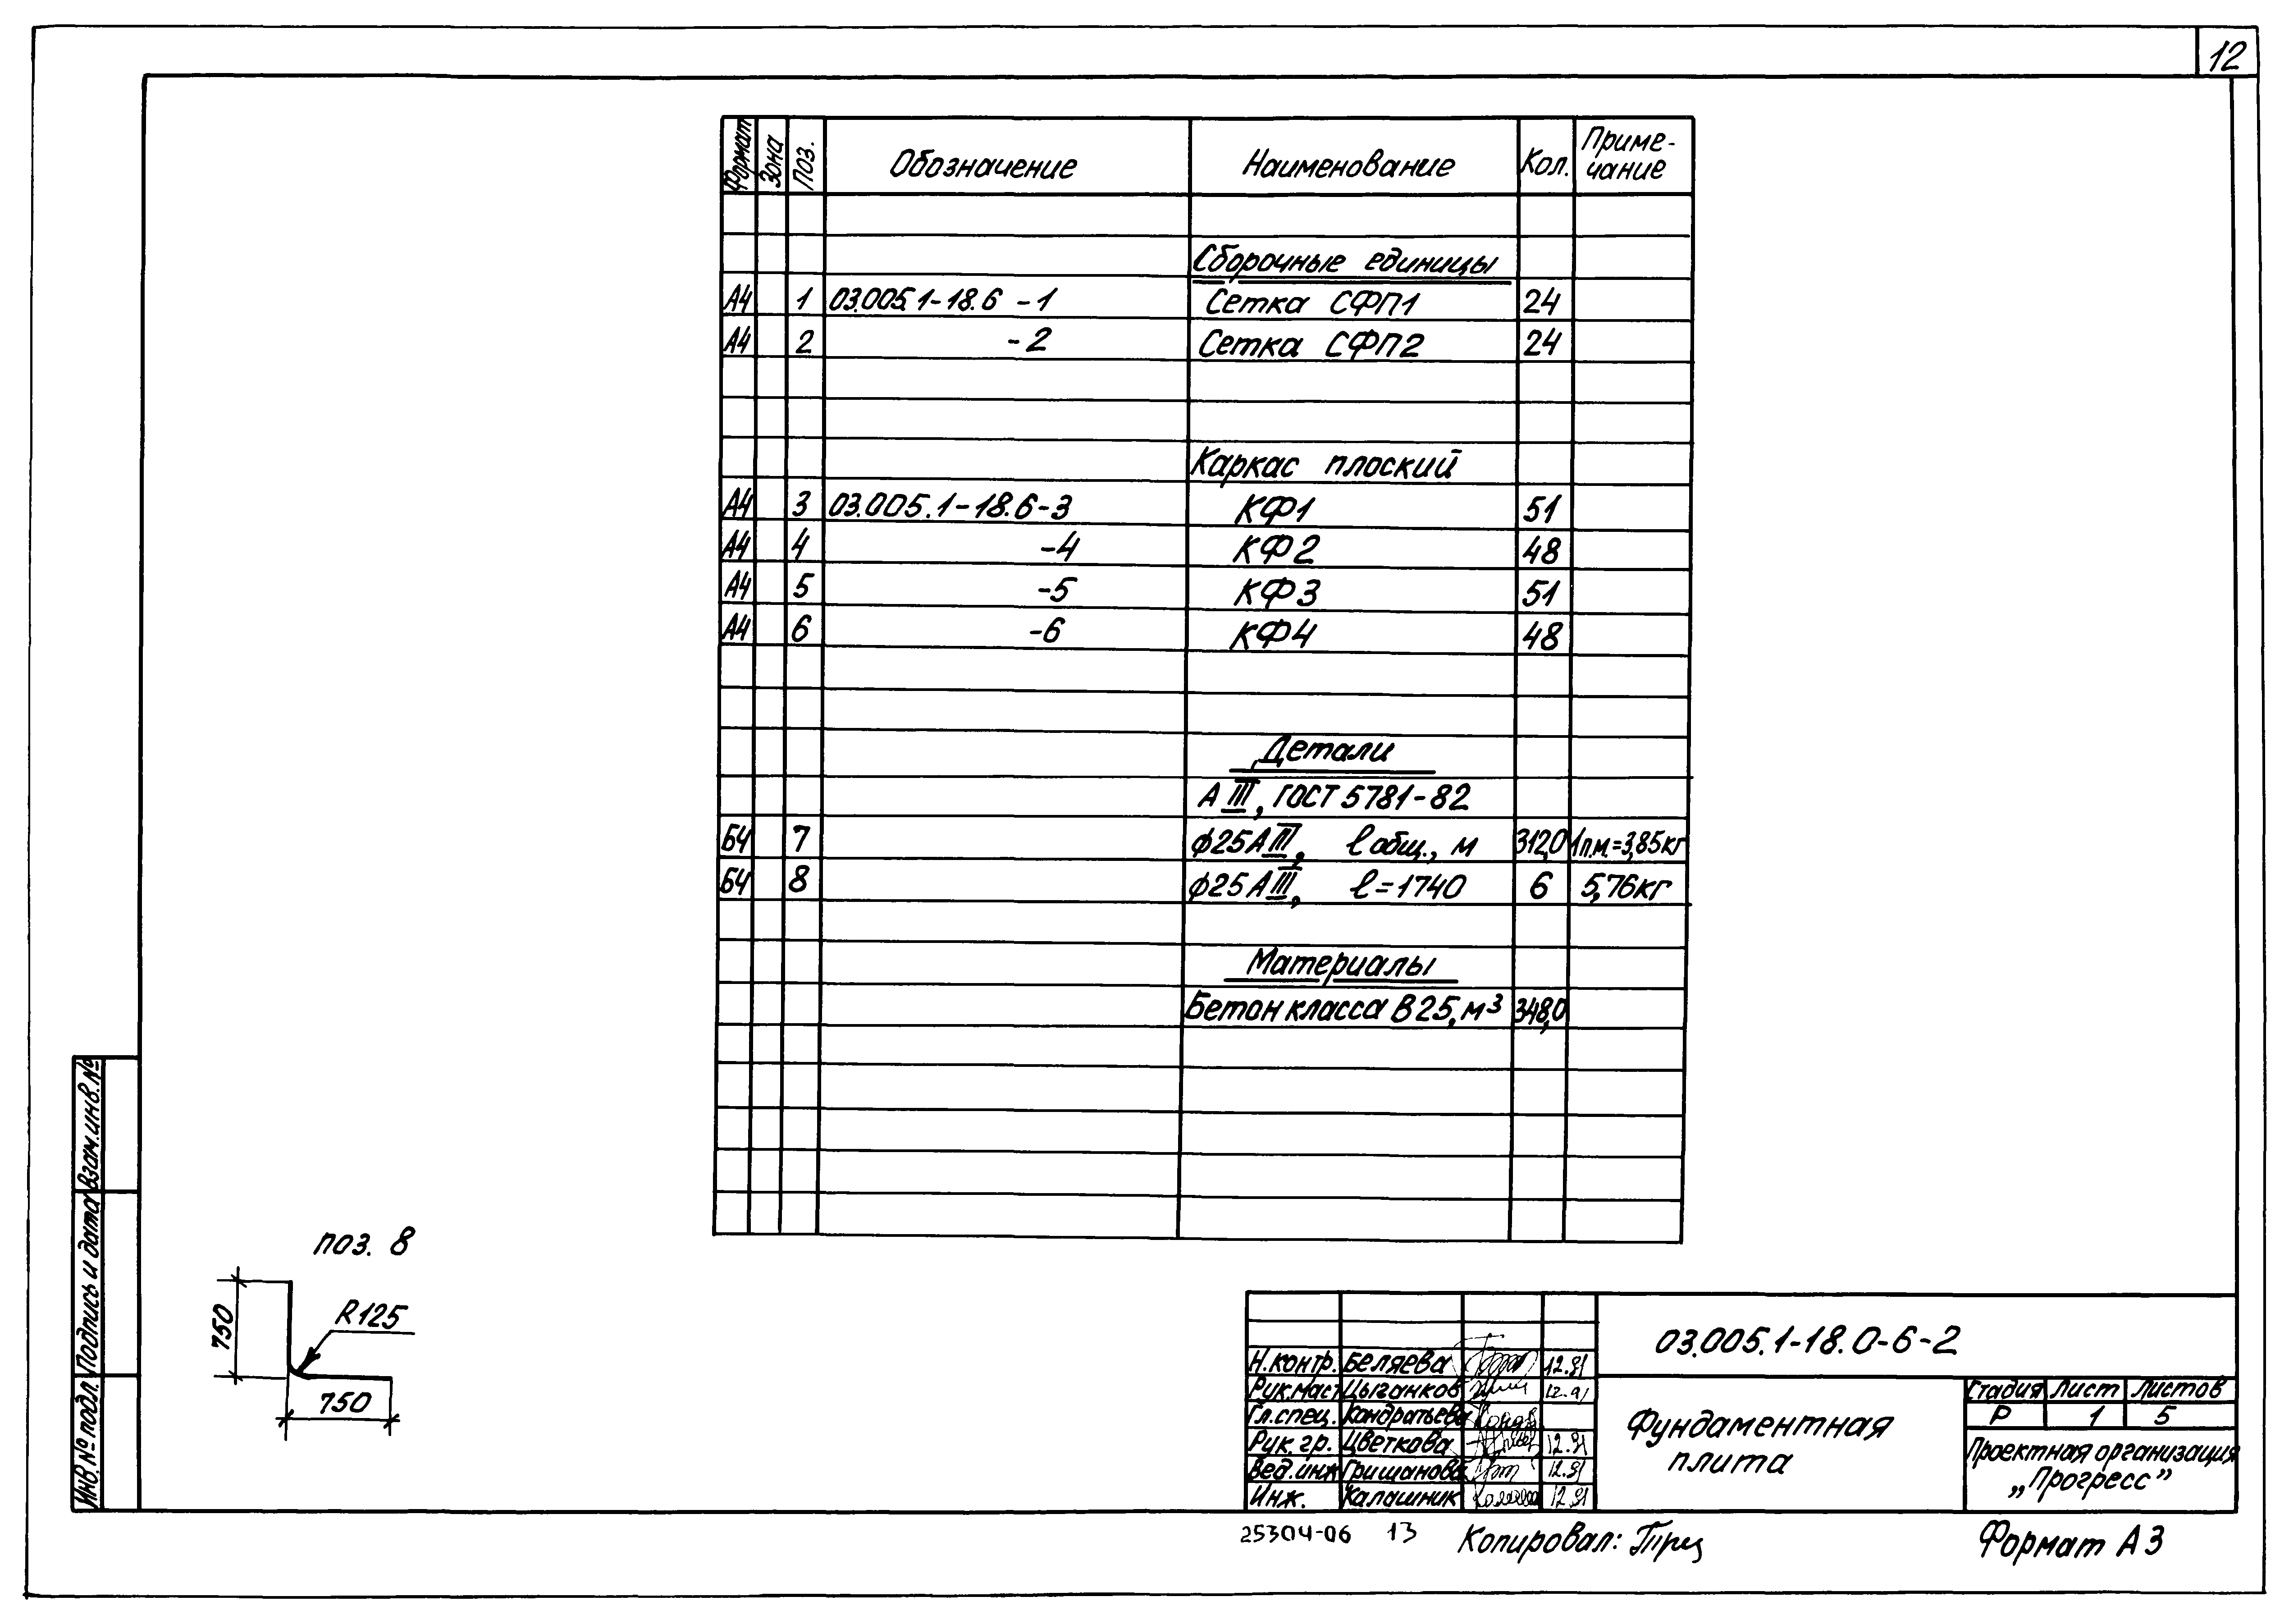 12
Формат Зона Поз. Обозначение Наименование Кол. Приме-
чание
Сборочные единицы
А4 1 03.005.1-18.6 -1 Сетка СФП1 24
А4 2 -2 Сетка СФП2 24
Каркас плоский
А4 3 03.005.1-18.6-3 КФ1 51
А4 4 -4 КФ2 48
А4 5 -5 КФ3 51
А4 6 -6 КФ4 48
Детали
А III, ГОСТ 5781-82
БЧ 7 ϕ25 А III, ℓ общ., м 312,0 1п.м.=3,85кг
БЧ 8 ϕ25 А III, ℓ=1740 6 5,76кг
Материалы
Бетон класса В25, м³ 348,0
Взам.инв.№
Подпись и дата
Инв.№ подл.
поз. 8
R125
750
750
03.005.1-18.0-6-2
Н.контр. Беляева 12.91
Рук.маст Цыганков 12.91
Гл.спец. Кондратьева
Рук.гр. Цветкова 12.91
Вед.инж Гришанова 12.91
Инж. Калашник 12.91
Фундаментная
плита
Стадия Лист Листов
Р 1 5
Проектная организация
„Прогресс”
25304-06 13 Копировал: Формат А3